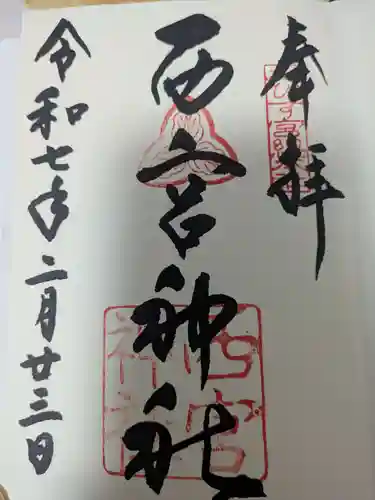 奉拝
西宮神社
令和七年二月廿三日
西宮神社